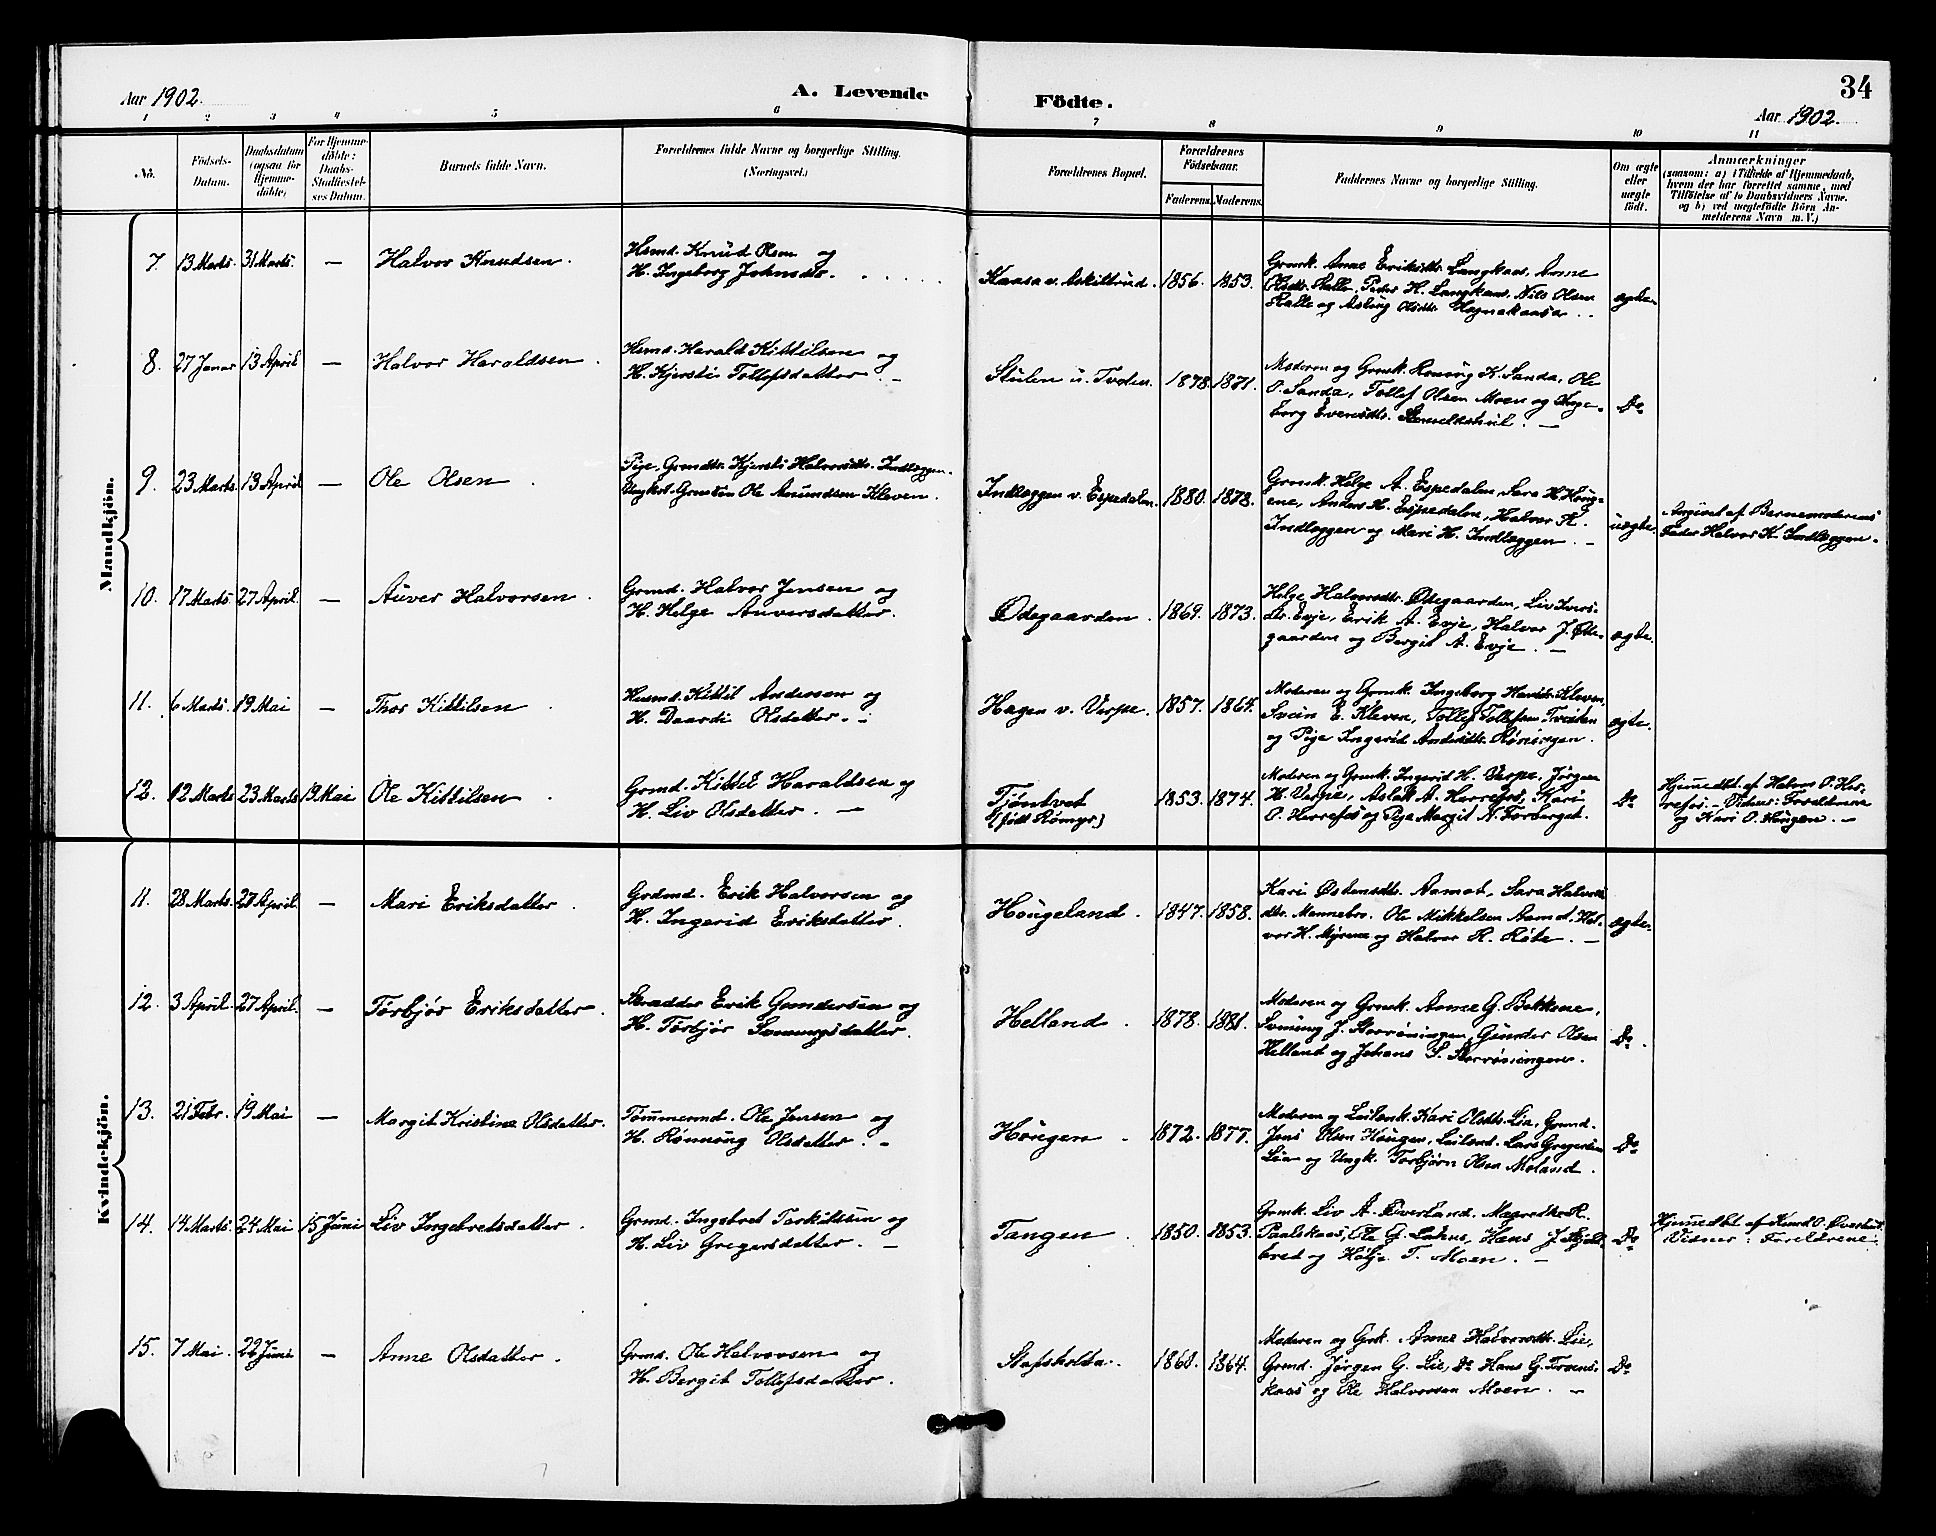 34
Aar 1902.
A. Levende
Födte.
Aar 1902.
1 2 3 4 5 6 7 8 9 10 11
No.
Födsels-
Datum.
Daabsdatum
(ogsaa for
Hjemme-
döbte)
For Hjemme-
döbte:
Daabs-
Stadfæstel-
ses Datum.
Barnets fulde Navn.
Forældrenes fulde Navne og borgerlige Stilling.
(Næringsvei.)
Forældrenes Bopæl.
Forældrenes
Födselsaar.
Faderens. Moderens.
Faddernes Navne og borgerlige Stilling.
Om ægte
eller
uægte
födt.
Anmærkninger
(saasom: a) i Tilfælde af Hjemmedaab,
hvem der har forrettet samme, med
Tilföielse af to Daabsvidners Navne,
og b) ved uægtefödte Börn An-
melderens Navn m. V.)
Mandkjön.
7. 13 Marts. 31 Marts. — Halvor Knudsen.
Hsmd. Knud Olsen og
H. Ingeborg Johnsdtr.
Kaasa v. Askiltrud. 1856. 1853.
Grmk. Anne Eriksdtr. Langkaas, Anne
Olsdtr. Kalle, Peder H. Langkaas, Nils Olsen
Kalle og Aslaug Olsdtr. Hognakaasa
ægte.
8. 27 Janar 13 April — Halvor Haraldsen.
Hsmd. Harald Kittilsen og
H. Kjersti Tollefsdatter. —
Stulen u. Tveten. 1878. 1871.
Moderen og Grmk. Rønnøug K. Sanda, Ole
O. Sanda, Tollef Olsen Moen og Inge-
borg Evensdtr. —
Do
9. 23 Marts 13 April — Ole Olsen.
Pige. Grmdtr. Kjersti Halvorsdtr. Indlæggen.
Ungkal. Grmsøn Ole Amundsen Kleven.
Indlæggen v. Espedalen. 1880. 1878.
Grmk. Helge A. Espedalen, Sara H. Houg-
ene, Anders H. Espedalen, Halvor K.
Indlæggen og Mari H. Indlæggen. —
uægte.
Angivet af Barnemoderens
Fader Halvor K. Indlæggen.
10. 17 Marts 27 April. — Auver Halvorsen.
Grmd. Halvor Jensen og
H. Helge Auversdatter.
Ødegaarden. 1869. 1873.
Helge Halvorsdtr. Ødegaarden, Liv Ivers-
dtr. Evje, Erik A. Evje, Halvor J. Øde-
gaarden og Bergit A. Evje. —
ægte.
11. 6 Marts. 19 Mai — Thor Kittilsen.
Husmd. Kittil Andersen og
H. Daardi Olsdatter.
Hagen v. Verpe. 1857. 1864.
Moderen og Grmk. Ingeborg Kleven,
Svein E. Kleven, Tollef Tollefsen Tveiten
og Pige Ingerid Andersdtr. Røningen.
ægte.
12. 12 Marts 23 Marts 19 Mai Ole Kittilsen.
Grmd. Kittil Haraldsen og
H. Liv Olsdatter. —
Tjøntvet
(født Rømyr.)
1853. 1874.
Moderen og Grmk. Ingerid H. Verpe, Jørgen
H. Verpe, Aslak A. Herrefos, Kari
O. Herrefos og Pige Margit N. Forberget.
Do
Hjemmedbt. af Halvor O. Her-
refos. — Vidner: Forældrene
og Kari O. Hougen. —
Kvindekjön.
11. 28 Marts. 27 April. — Mari Eriksdatter.
Grdmd. Erik Halvorsen og
H. Ingerid Eriksdatter.
Hougeland. 1847. 1858.
Kari Østensdtr. Aamot, Sara Halvors-
dtr. Mannebro. Ole Mikkelsen Aamot, Hal-
vor H. Myrene og Halvor R. Røte. —
ægte.
12. 3 April. 27 April. — Torbjør Eriksdatter.
Skrædder Erik Gundersen og
H. Torbjør Sveinungsdatter.
Helland. 1878. 1881.
Moderen og Grmk. Anne G. Bekkene,
Sveinung J. Storrøningen, Gunder Olsen
Helland og Johans S. Storrøningen.
Do
13. 21 Febr. 19 Mai — Margit Kristine Olsdatter.
Tømmermd. Ole Jensen og
H. Rønnøug Olsdatter. —
Hougen. 1872. 1877.
Moderen og Leilænk. Kari Olsdtr. Lia, Grmd.
Jens Olsen Hougen, Leilænd. Lars Gregersen
Lia og Ungk. Torbjørn Olsen Moland.
Do
14. 14 Marts. 24 Mai 15 Juni Liv Ingebretsdatter.
Grmd. Ingebret Terkildsen og
H. Liv Gregersdatter. —
Tangen. 1850. 1853.
Grmk. Liv A. Overland, Magrethe R.
Paalskaas, Ole G. Lahus, Hans J. Skjeld-
bred og Hølje T. Moen. —
Do
Hjemmedbt af Knud O.
Vidner: Forældrene.
15. 7 Mai. 22 Juni — Anne Olsdatter.
Grmd. Ole Halvorsen og
H. Bergit Tollefsdatter.
Stapsholta. 1860. 1864.
Moderen og Grk. Anne Halvorsdtr. Lie,
Grmd. Jørgen G. Lie, Do Hans G. Troens-
kaas og Ole Halvorsen Moen. —
Do